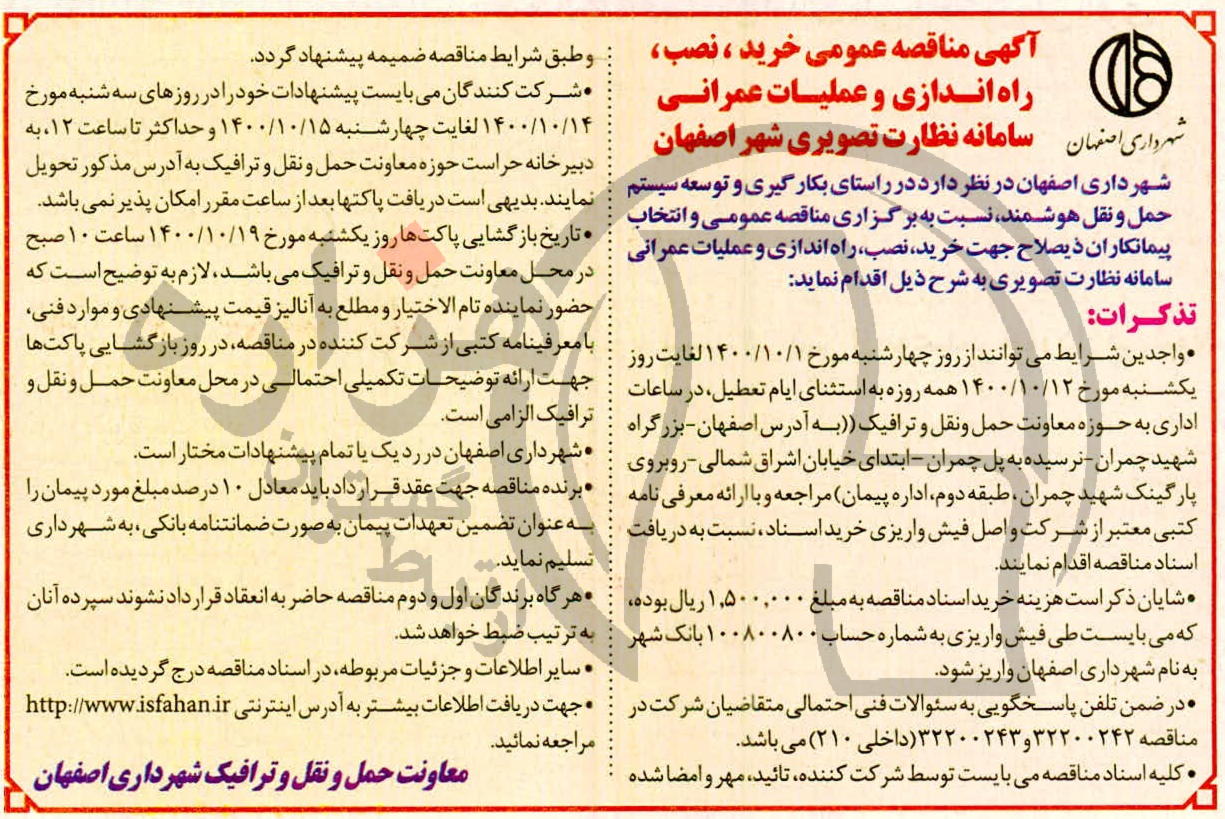 آگهی مناقصه عمومی خرید ، نصب ،
راه اندازی و عملیات عمرانی
سامانه نظارت تصویری شهر اصفهان
شهرداری اصفهان
شهرداری اصفهان در نظر دارد در راستای بکارگیری و توسعه سیستم
حمل و نقل هوشمند، نسبت به برگزاری مناقصه عمومی و انتخاب
پیمانکاران ذیصلاح جهت خرید، نصب، راه اندازی و عملیات عمرانی
سامانه نظارت تصویری به شرح ذیل اقدام نماید:
تذکرات:
•واجدین شرایط می توانند از روز چهارشنبه مورخ ۱۴۰۰/۱۰/۱ لغایت روز
یکشنبه مورخ ۱۴۰۰/۱۰/۱۲ همه روزه به استثنای ایام تعطیل، در ساعات
اداری به حوزه معاونت حمل ونقل و ترافیک ((به آدرس اصفهان-بزرگراه
شهید چمران-نرسیده به پل چمران –ابتدای خیابان اشراق شمالی-روبروی
پارگینک شهید چمران، طبقه دوم، اداره پیمان) مراجعه و با ارائه معرفی نامه
کتبی معتبر از شرکت و اصل فیش واریزی خرید اسناد، نسبت به دریافت
اسناد مناقصه اقدام نمایند.
•شایان ذکر است هزینه خرید اسناد مناقصه به مبلغ ۱,۵۰۰,۰۰۰ ریال بوده،
که می بایست طی فیش واریزی به شماره حساب ۱۰۰۸۰۰۸۰۰ بانک شهر
به نام شهرداری اصفهان واریز شود.
•در ضمن تلفن پاسخگویی به سئوالات فنی احتمالی متقاضیان شرکت در
مناقصه ۳۲۲۰۰۲۴۲ و ۳۲۲۰۰۲۴۳(داخلی ۲۱۰) می باشد.
• کلیه اسناد مناقصه می بایست توسط شرکت کننده، تائید، مهر و امضا شده
و طبق شرایط مناقصه ضمیمه پیشنهاد گردد.
•شرکت کنندگان می بایست پیشنهادات خود را در روزهای سه شنبه مورخ
۱۴۰۰/۱۰/۱۴ لغایت چهارشنبه ۱۴۰۰/۱۰/۱۵ و حداکثر تا ساعت ۱۲، به
دبیرخانه حراست حوزه معاونت حمل و نقل و ترافیک به آدرس مذکور تحویل
نمایند. بدیهی است دریافت پاکتها بعد از ساعت مقرر امکان پذیر نمی باشد.
•تاریخ بازگشایی پاکت‌ها روز یکشنبه مورخ ۱۴۰۰/۱۰/۱۹ ساعت ۱۰ صبح
در محل معاونت حمل ونقل و ترافیک می باشد، لازم به توضیح است که
حضور نماینده تام الاختیار و مطلع به آنالیز قیمت پیشنهادی و موارد فنی،
با معرفینامه کتبی از شرکت کننده در مناقصه، در روز بازگشایی پاکت‌ها
جهت ارائه توضیحات تکمیلی احتمالی در محل معاونت حمل و نقل و
ترافیک الزامی است.
•شهرداری اصفهان در رد یک یا تمام پیشنهادات مختار است.
•برنده مناقصه جهت عقد قرارداد باید معادل ۱۰ درصد مبلغ مورد پیمان را
به عنوان تضمین تعهدات پیمان به صورت ضمانتنامه بانکی، به شهرداری
تسلیم نماید.
•هرگاه برندگان اول و دوم مناقصه حاضر به انعقاد قرارداد نشوند سپرده آنان
به ترتیب ضبط خواهد شد.
• سایر اطلاعات و جزئیات مربوطه، در اسناد مناقصه درج گردیده است.
•جهت دریافت اطلاعات بیشتر به آدرس اینترنتی http://www.isfahan.ir
مراجعه نمائید.
معاونت حمل و نقل و ترافیک شهرداری اصفهان
هزاره
گستر
ارتباط